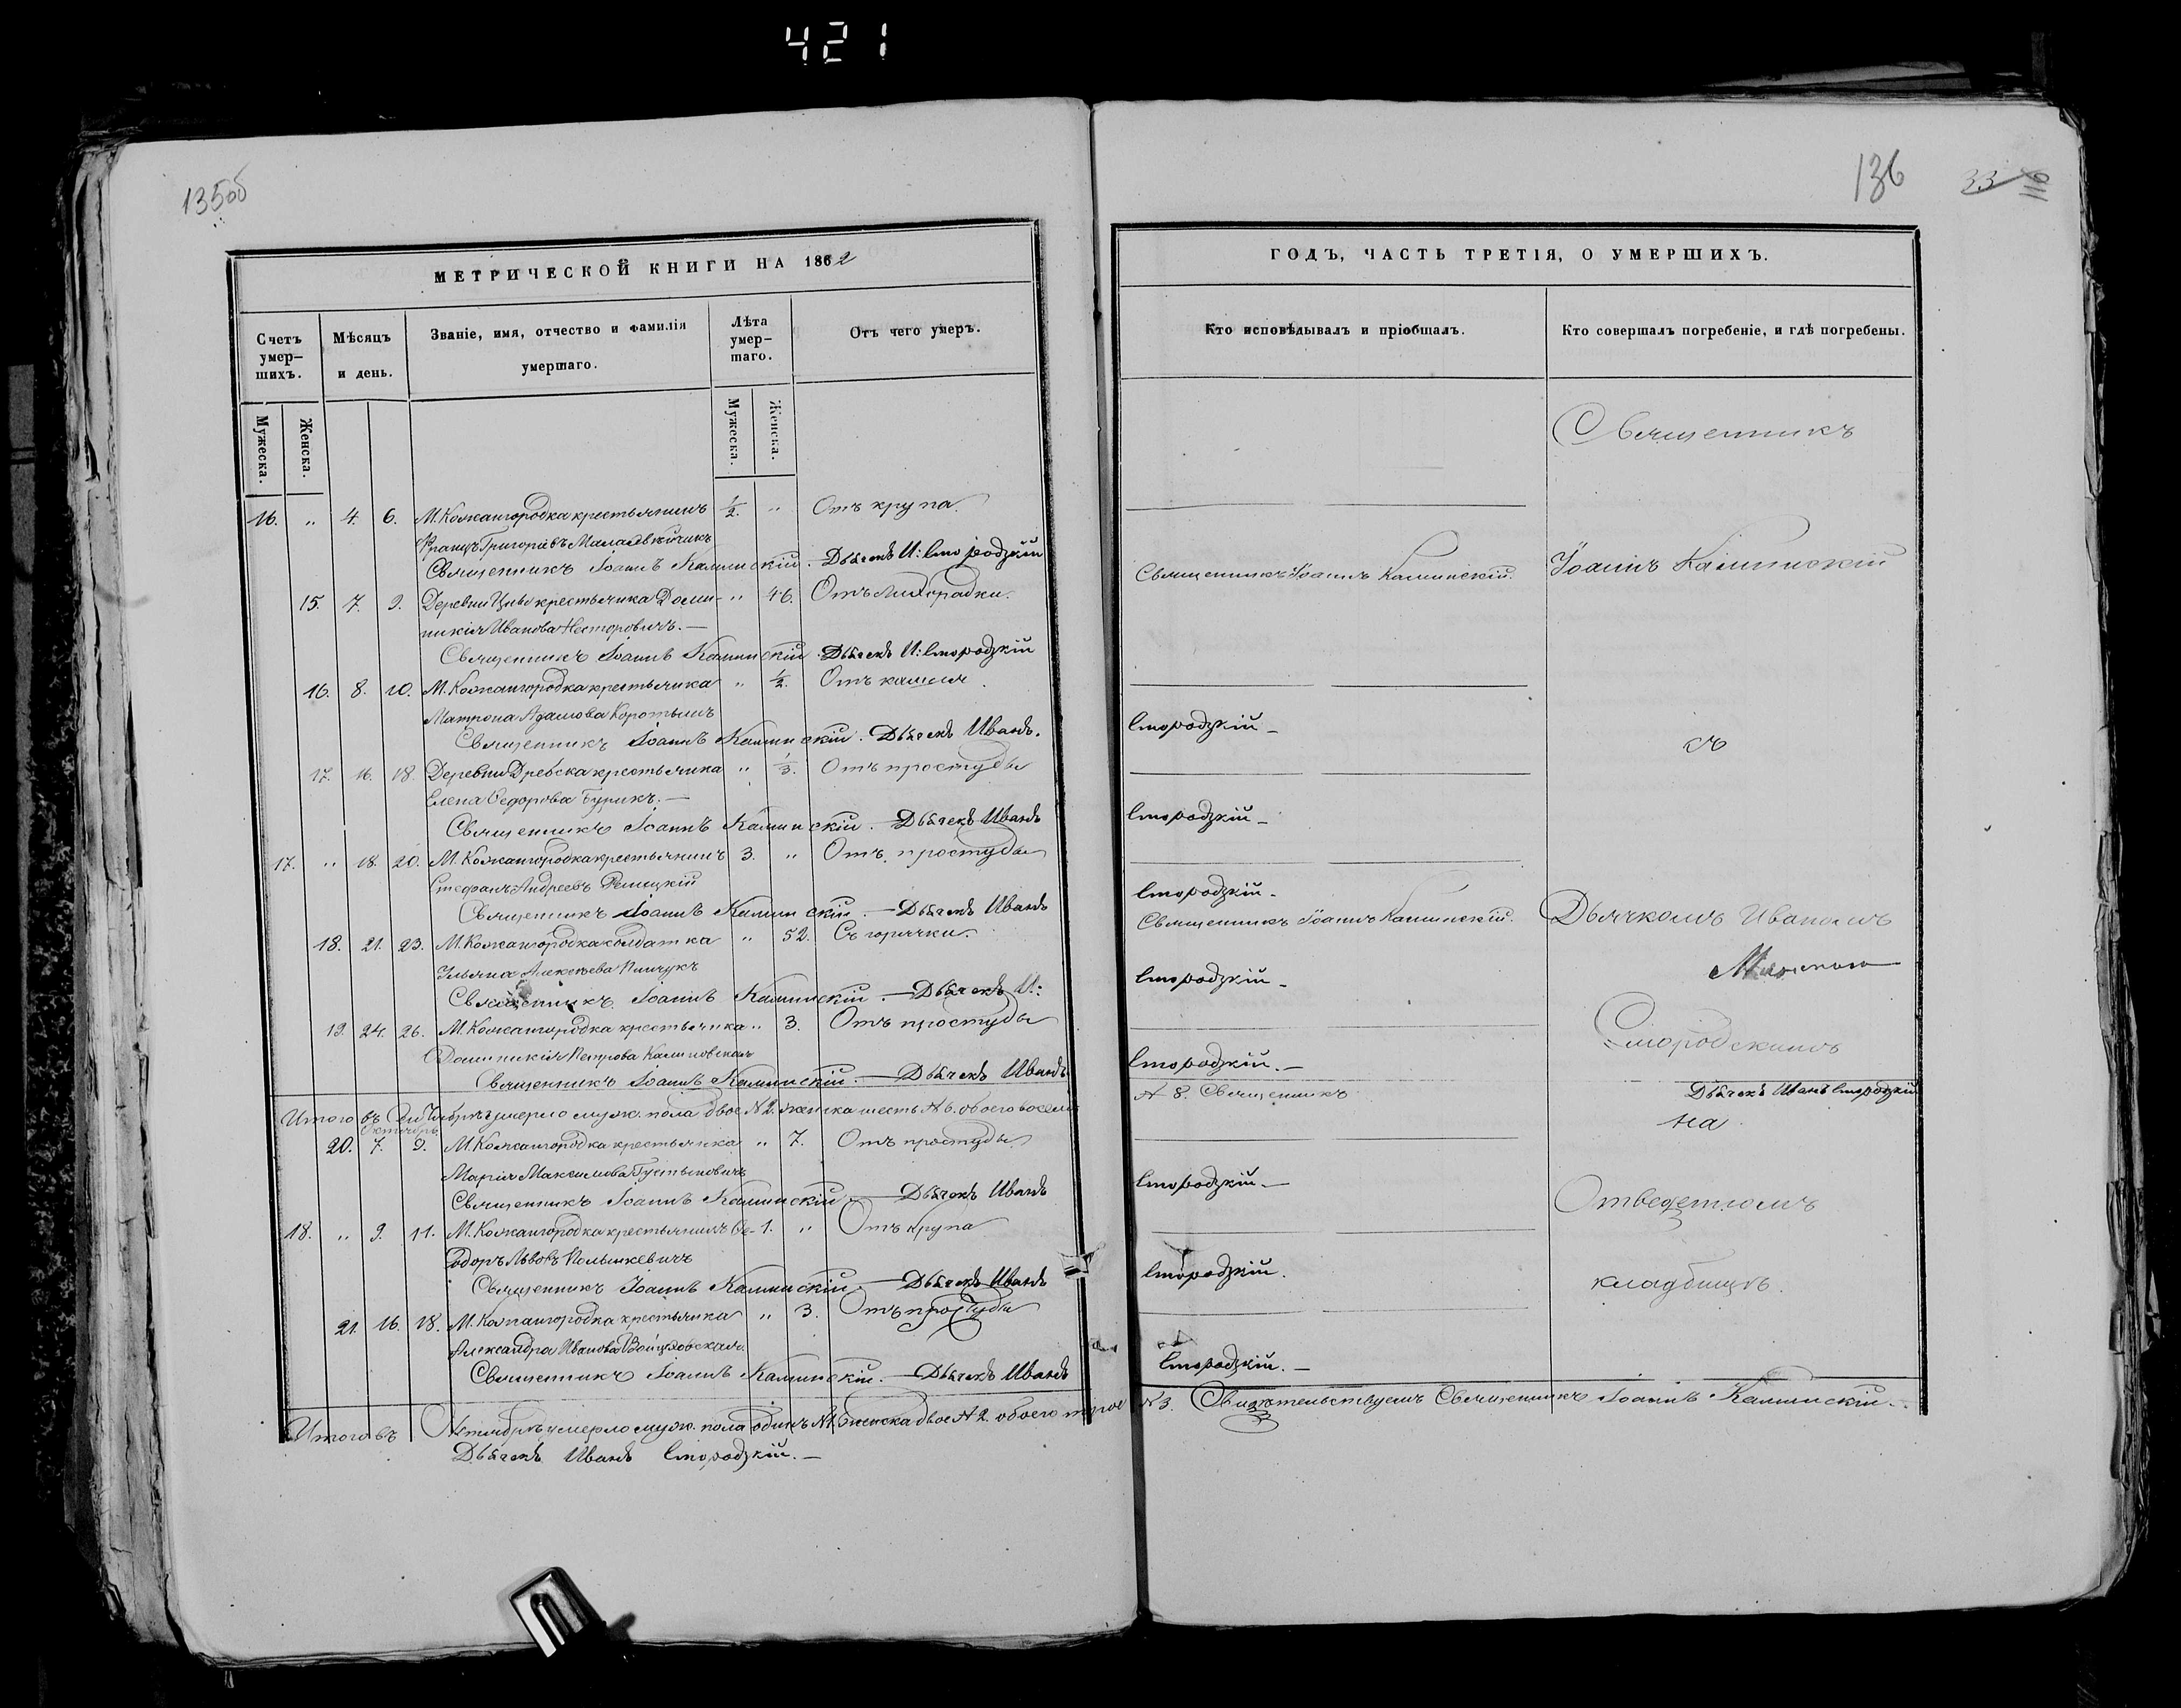 421
135об
136
МЕТРИЧЕСКОЙ КНИГИ НА 1862
Счетъ умер-шихъ.
Мѣсяцъ и день.
Званіе, имя, отчество и фамилія умершаго.
Лѣта умер-шаго.
Отъ чего умеръ.
Мужеска.
Женска.
Мужеска.
Женска.
16. " 4. 6. М. Кожангородка крестьянинъ 1/2. " Отъ крупа.
Францъ Григоріевъ
Священникъ Іоаннъ Каминскій. Дьячекъ И: Сmородзкій
15. 7. 9. Деревни Цны крестьянка Доми- " 46. Отъ лихорадки.
никія Иванова Несторовичъ. —
Священникъ Іоаннъ Каминскій. Дьячекъ И: Сmородзкій
16. 8. 10. М. Кожангородка крестьянка " 1/2. Отъ кашля.
Матрона Адамова Коротышъ
Священникъ Іоаннъ Каминскій. Дьячекъ Иванъ.
17. 16. 18. Деревни Дребска крестьянка " 1/3. Отъ простуды
Елена Ѳедорова Бурикъ. —
Священникъ Іоаннъ Каминскій. — Дьячекъ Иванъ
17. " 18. 20. М. Кожангородка крестьянинъ 3. " Отъ простуды
Стефанъ Андреевъ
Священникъ Іоаннъ Каминскій. — Дьячекъ Иванъ
18. 21. 23. М. Кожангородка солдатка " 52. Съ горячки.
Ульяна Алексѣева Пинчукъ
Священникъ Іоаннъ Каминскій. — Дьячекъ И:
19. 24. 26. М. Кожангородка крестьянка " 3. Отъ простуды
Доминикія Петрова Калиновская
Священникъ Іоаннъ Каминскій. — Дьячекъ Иванъ
Итого въ умерло муж. пола двое N 2. женска шесть N 6. обоего восемь
Октябрь
20. 7. 9. М. Кожангородка крестьянка " 7. Отъ простуды
Марія Максимова
Священникъ Іоаннъ Каминскій. — Дьячекъ Иванъ
18. " 9. 11. М. Кожангородка крестьянинъ Ѳе- 1. " Отъ крупа
одоръ Львовъ
Священникъ Іоаннъ Каминскій. — Дьячекъ Иванъ
21. 16. 18. М. Кожангородка крестьянка " 3. Отъ простуды
Александра Иванова Войцѣховская
Священникъ Іоаннъ Каминскій. — Дьячекъ Иванъ
Итого въ Октябрѣ умерло муж. пола одинъ N 1. женска двое N 2. обоего трое
Дьячекъ Иванъ Сmородзкій. —
ГОДЪ, ЧАСТЬ ТРЕТІЯ, О УМЕРШИХЪ.
Кто исповѣдывалъ и пріобщалъ.
Кто совершалъ погребеніе, и гдѣ погребены.
Священникъ
Священникъ Іоаннъ Каминскій.
Іоаннъ Каминскій
Сmородзкій —
съ
Сmородзкій —
Сmородзкій —
Священникъ Іоаннъ Каминскій.
Дьячкомъ Иваномъ
Сmородзкій —
Сmородскимъ
Сmородзкій. —
N 8. Священникъ
Дьячекъ Иванъ Сmородзкій
на
Сmородзкій. —
Отведенномъ
Сmородзкій.
кладбищѣ.
Сmородзкій. —
N 3. Свидѣтельствуемъ Священникъ Іоаннъ Каминскій. —